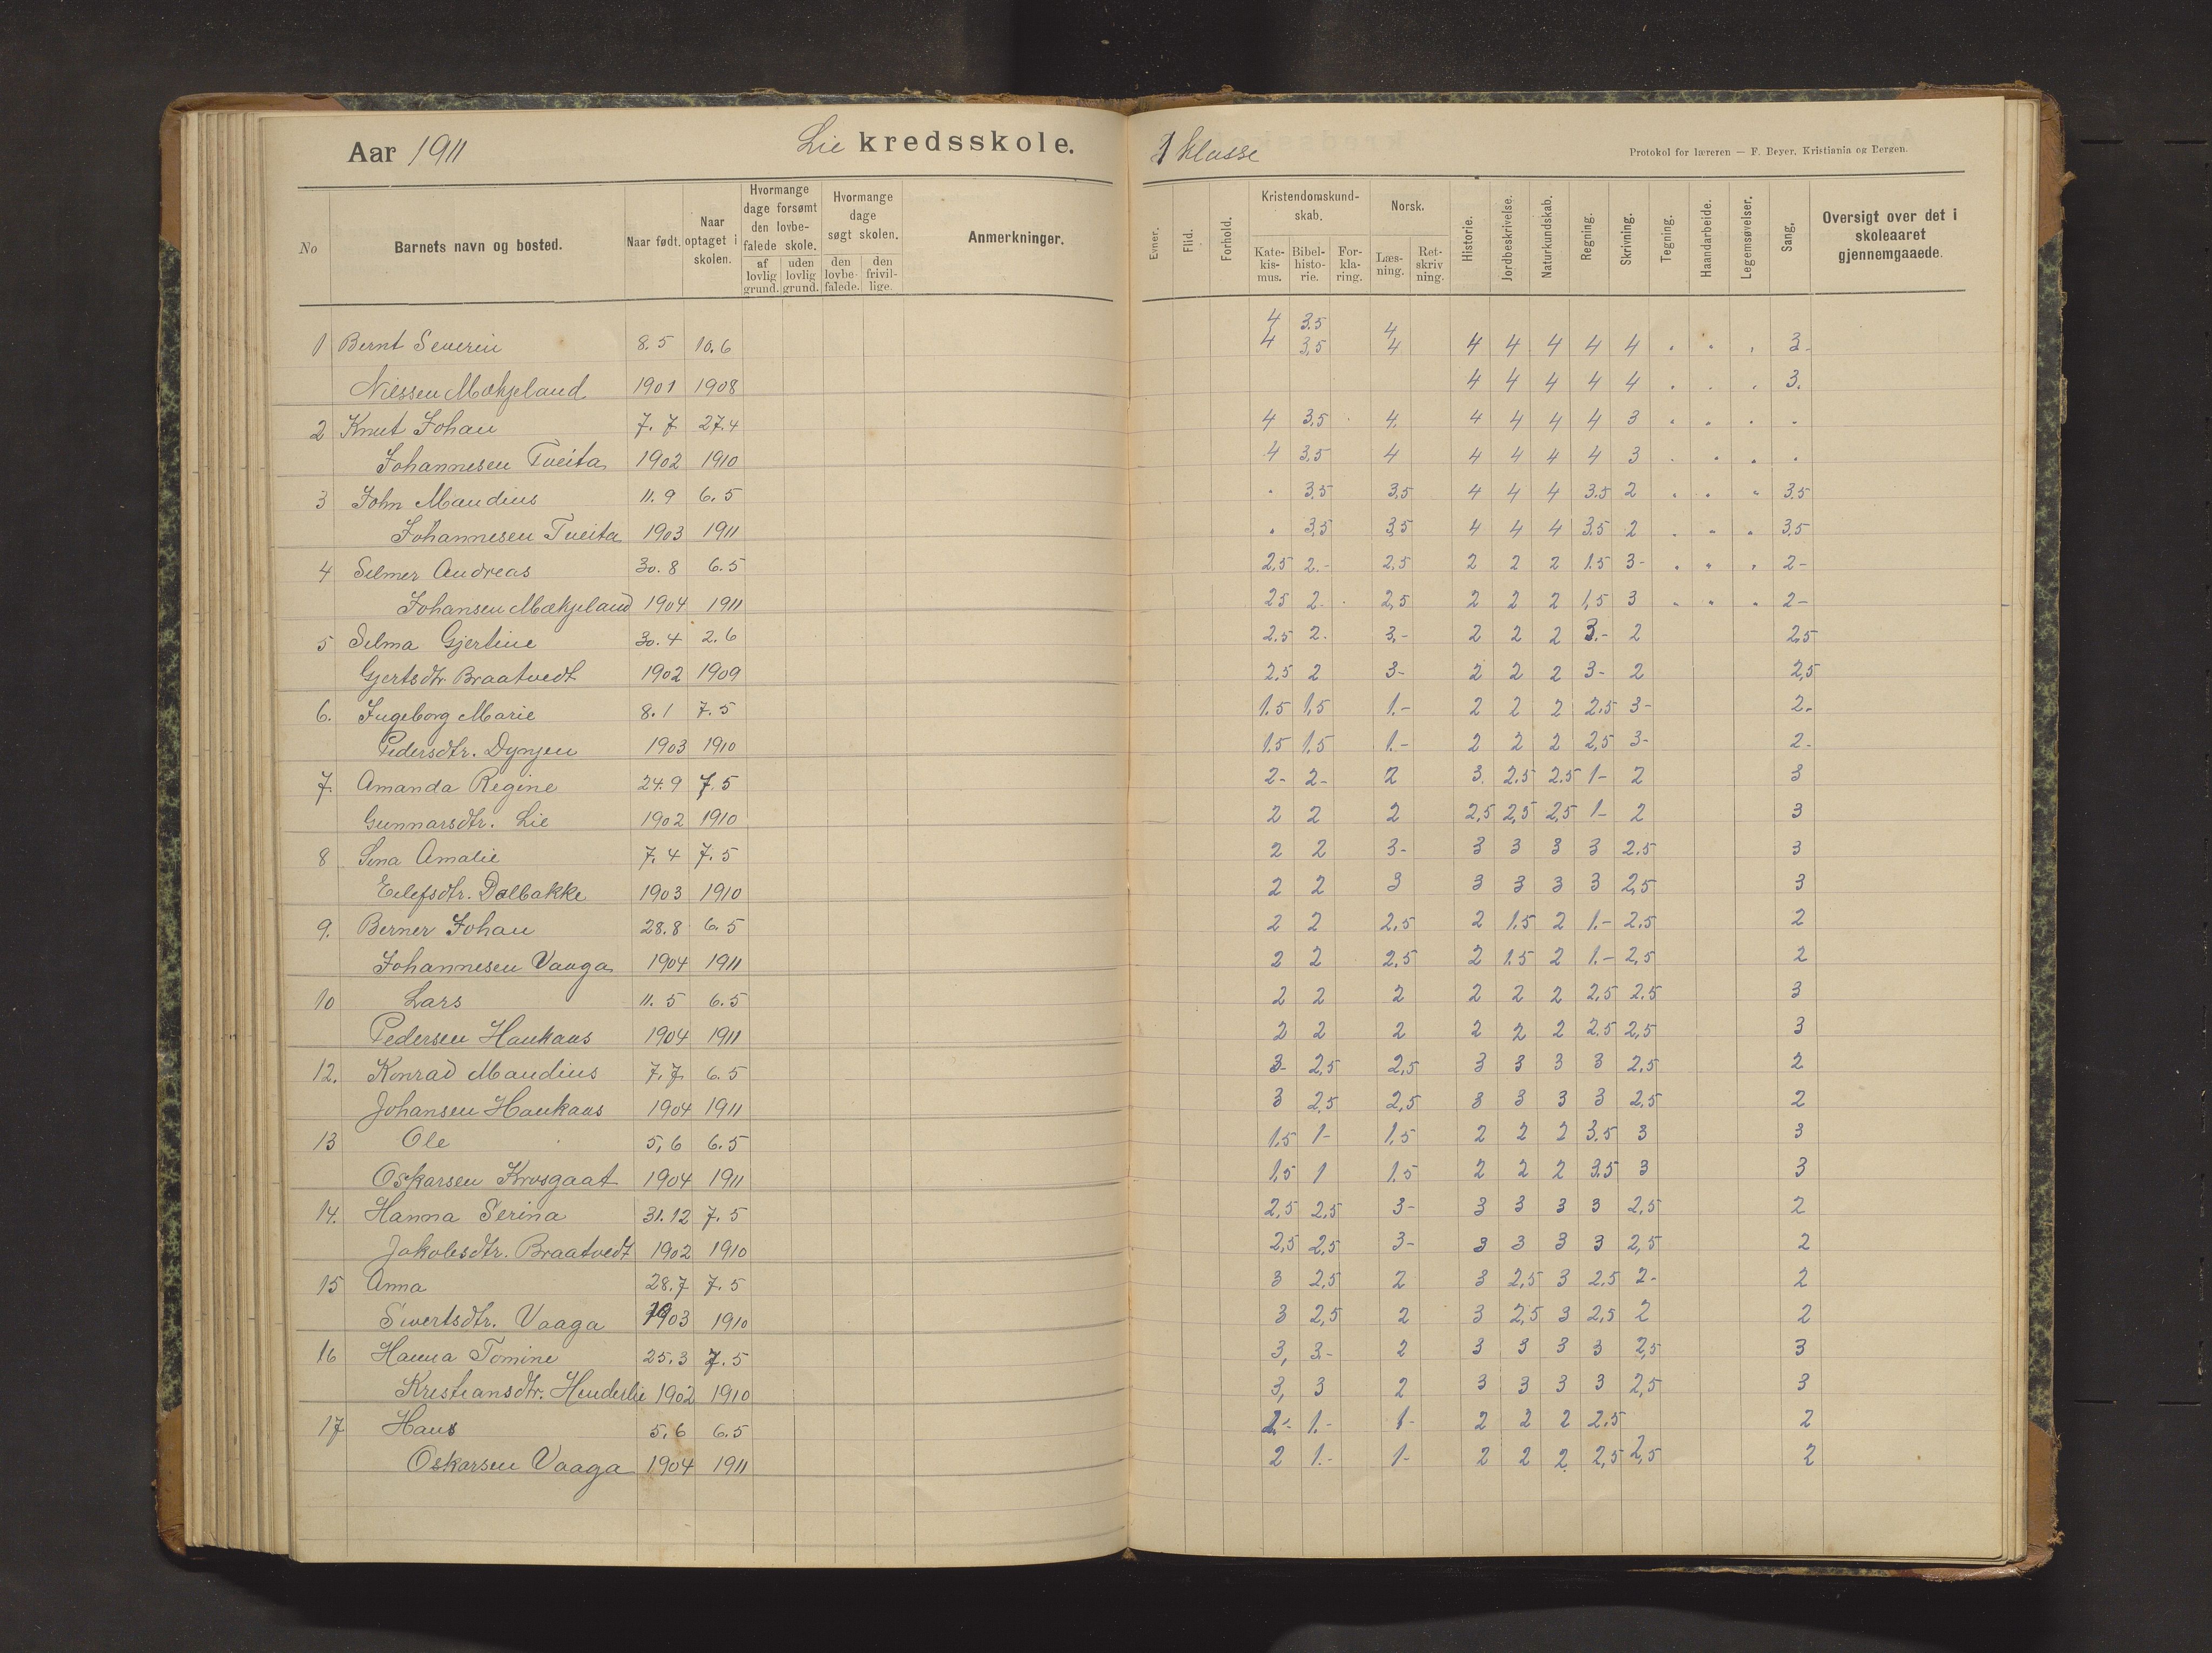 Aar 1911 Lie kredsskole. 1 klasse Protokol for læreren — F. Beyer, Kristiania og Bergen.
No Barnets navn og bosted. Naar født. Naar optaget i skolen. Hvormange dage forsømt den lovbefalede skole. af lovlig grund. uden lovlig grund. Hvormange dage søgt skolen. den lovbefalede. den frivillige. Anmerkninger. Evner. Flid. Forhold. Kristendomskundskab. Katekismus. Bibelhistorie. Forklaring. Norsk. Læsning. Retskrivning. Historie. Jordbeskrivelse. Naturkundskab. Regning. Skrivning. Tegning. Haandarbeide. Legemsøvelser. Sang. Oversigt over det i skoleaaret gjennemgaaede.
4 3.5 4
1 Bernt Severin 8.5 10.6 4 3,5 4 4 4 4 4 4 . . . 3-
Nilssen Mækjeland 1901 1908 4 4 4 4 4 . . . 3.
2 Knut Johan 7.7 27.4 4 3,5 . 4. 4 4 4 4 3 . . . .
Johannesen Tveita 1902 1910 4 3,5 4 4 4 4 4 3 . . . .
3 John Maudius 11.9 6.5 . 3,5 3,5 4 4 4 3.5 2 . . . 3,5
Johannesen Tveita 1903 1911 . 3,5 3,5 4 4 4 3.5 2 . . . 3,5
4 Selmer Andreas 30.8 6.5 2,5 2.- 2,5 2 2 2 1.5 3- . . . 2-
Johansen Mækjeland 1904 1911 2,5 2. . 2,5 2 2 2 1,5 3 . . . 2-
5 Selma Gjertine 30.4 2.6 2.5 2. 3.- 2 2 2 3.- 2 2,5
Gjertsdtr Braatvedt 1902 1909 2,5 2 3- 2 2 2 3- 2 2,5
6. Ingeborg Marie 8.1 7.5 1.5 1,5 1.- 2 2 2 2.5 3- 2.
Pedersdtr. Dyngen 1903 1910 1.5 1.5 1.- 2 2 2 2,5 3- 2-
7. Amanda Regine 24.9 7.5 2- 2- 2 3. 2.5 2.5 1- 2 3
Gunnarsdtr. Lie 1902 1910 2 2 2 2,5 2,5 2,5 1- 2 3
8 Sina Amalie 7.4 7.5 2 2 3- 3 3 3 3 2.5 3
Eilefsdtr. Dalbakke 1903 1910 2 2 3 3 3 3 3 2,5 3
9. Berner Johan 28.8 6.5 2 2 2,5 2 1.5 2 1.- 2,5 2
Johannesen Vaaga 1904 1911 2 2 2,5 2 1.5 2 1.- 2,5 2
10 Lars 11.5 6.5 2 2 2 2 2 2 2,5 2.5 3
Pedersen Haukaas 1904 1911 2 2 2 2 2 2 2.5 2,5 3
12. Konrad Maudius 7.7 6.5 3- 2,5 2,5 3 3 3 3 2.5 2
Johansen Haukaas 1904 1911 3 2,5 2,5 3 3 3 3 2,5 2
13 Ole 5,6 6.5 1.5 1- 1.5 2 2 2 3.5 3 3
Oskarsen Krosgaat 1904 1911 1,5 1 1.5 2 2 2 3.5 3 3
14. Hanna Serina 31.12 7.5 2,5 2,5 3- 3 3 3 3 2,5 2
Jakobsdtr. Braatvedt 1902 1910 2,5 2,5 3- 3 3 3 3 2,5 2
15 Anna 28.7 7.5 3 2,5 2 3 2,5 3 2.5 2- 2
Sivertsdtr. Vaaga 1903 1910 3 2,5 2 3 2,5 3 2,5 2 2
16 Hanna Tomine 25.3 7.5 3, 3- 2 3 3 3 3 2,5 3
Kristiansdtr. Henderlie 1902 1910 3, 3 2 3 3 3 3 2,5 3
17 Hans 5.6 6.5 2.- 1.- 1- 2 2 2 2.5 2
Oskarsen Vaaga 1904 1911 2 1.- 1- 2 2 2 2,5 2,5 2